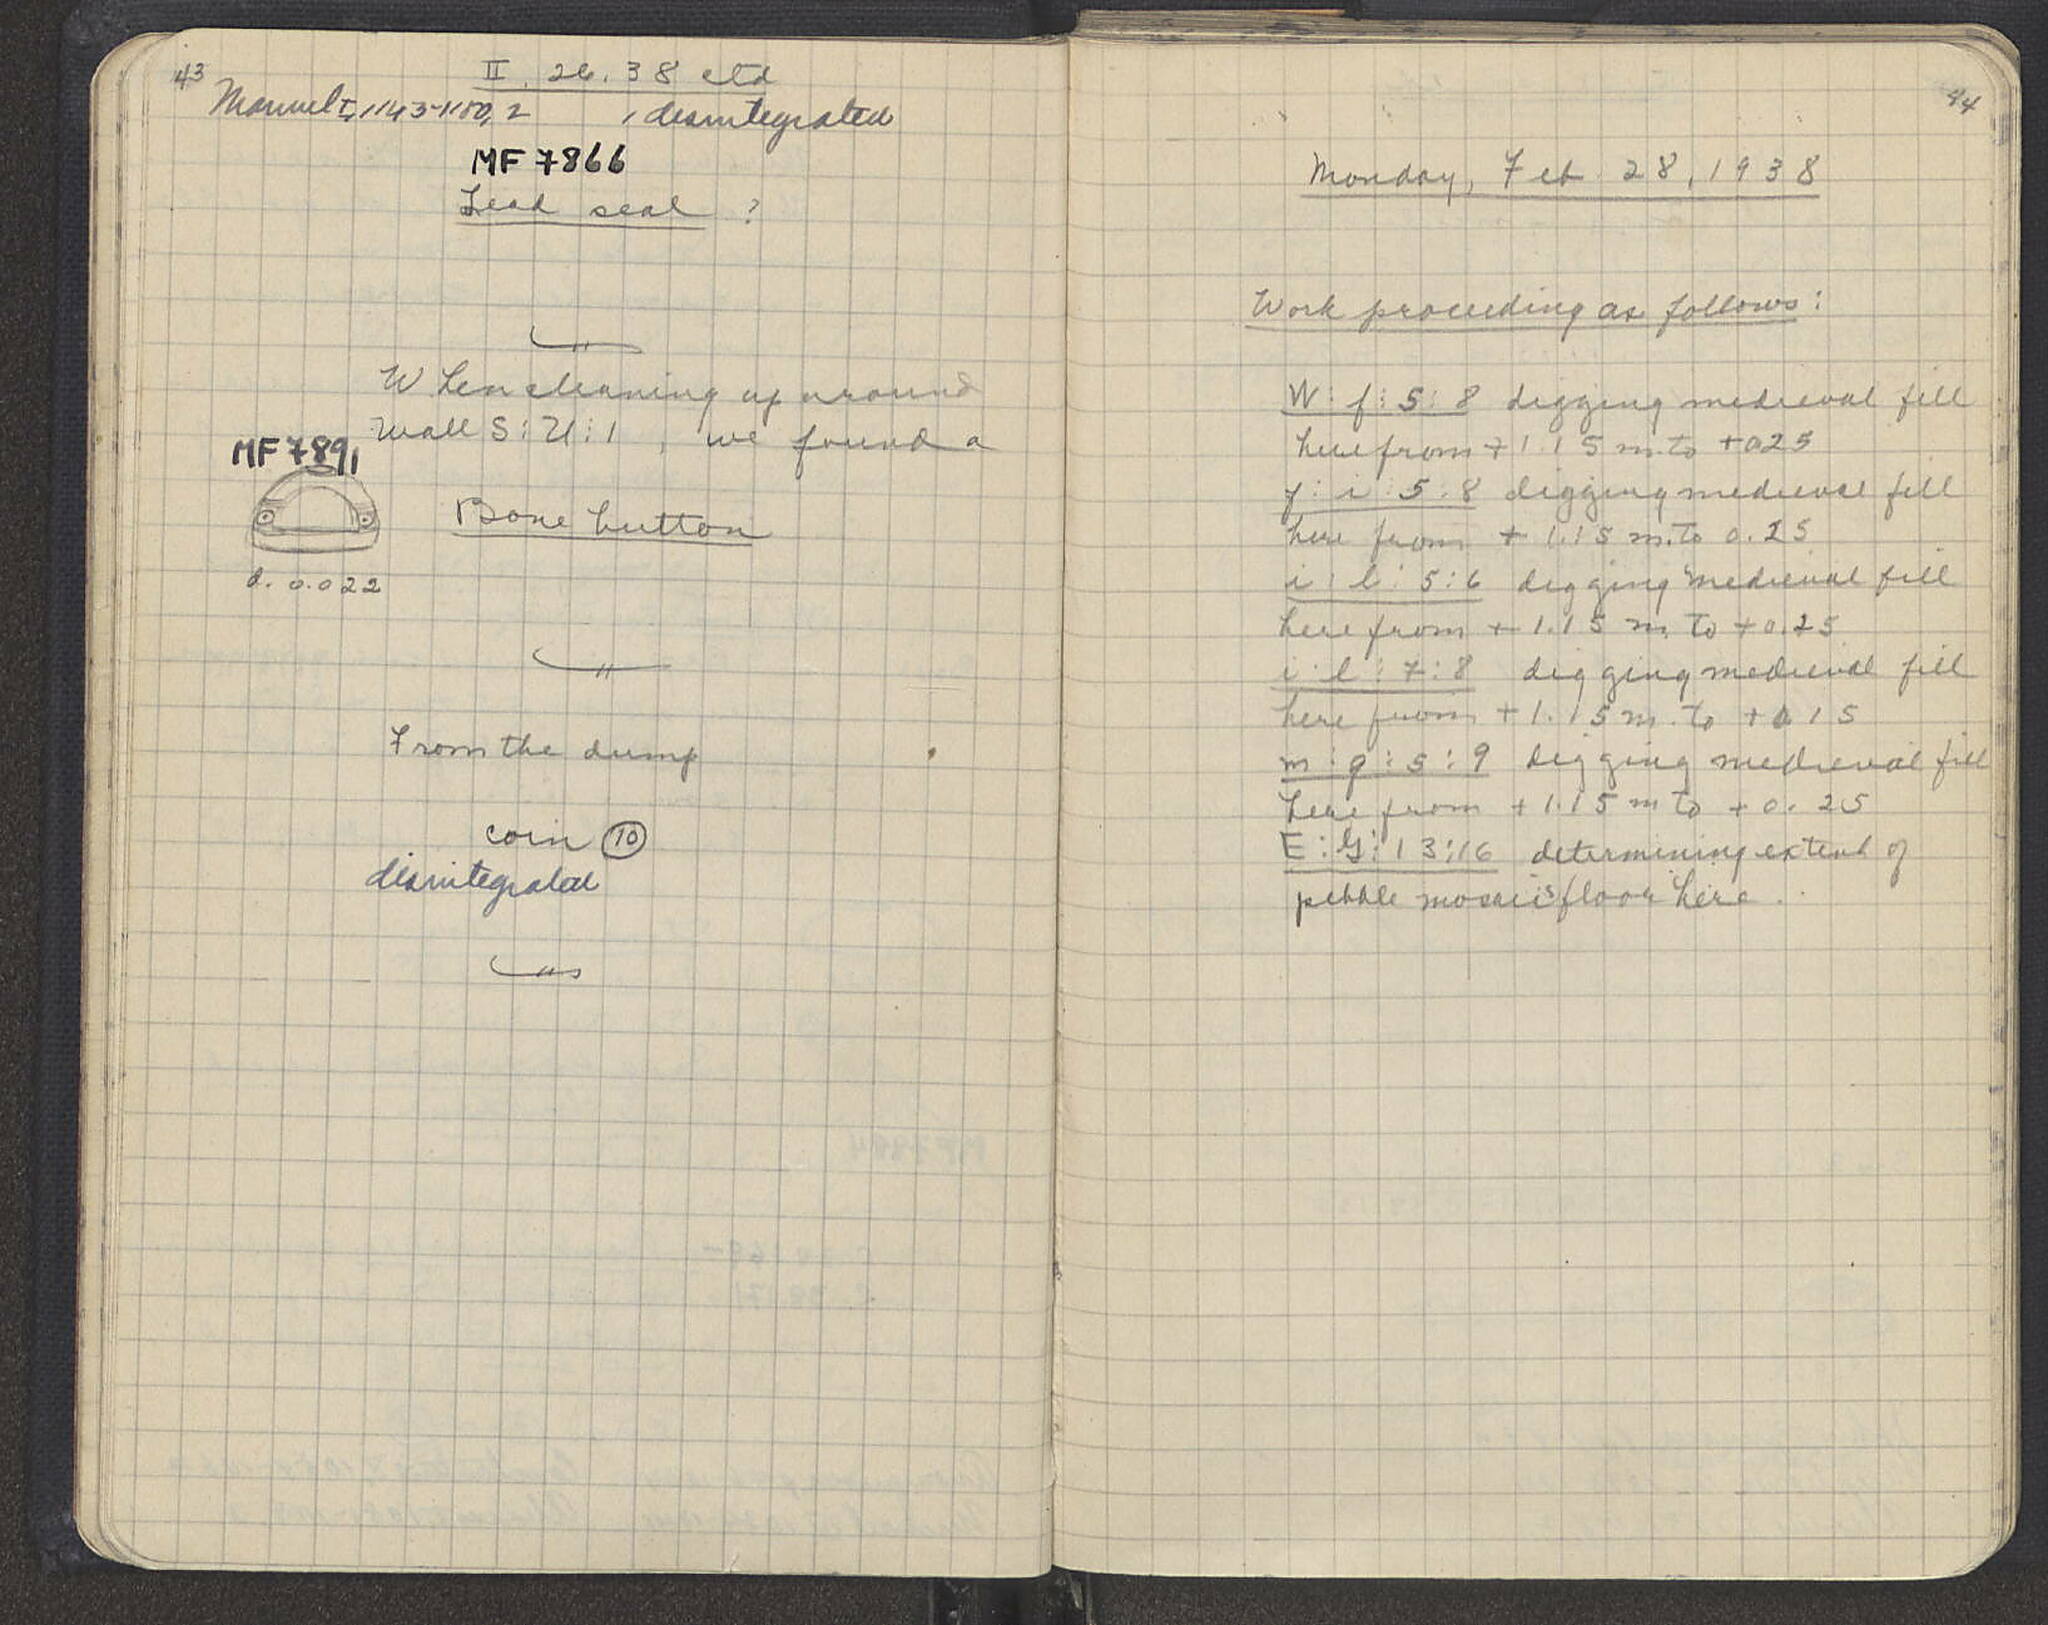 43
II. 26. 38 ctd
Manuel I, 1143-1180, 2 1 disintegrated
MF 7866
Lead seal ?
When cleaning up around
Wall S:U:1, we found a
MF 7891
Bone button
d. 0.022
From the dump
coin 10
disintegrated
44
Monday, Feb 28, 1938
Work proceeding as follows:
W: f: 5: 8 digging medieval fill
here from +1.15 m. to +0.25
f: i: 5: 8 digging medieval fill
here from +1.15 m. to 0.25
i: l: 5: 6 digging medieval fill
here from +1.15 m. to +0.25
i: l: 7: 8 digging medieval fill
here from +1.15 m. to +0.15
m: q: 5: 9 digging medieval fill
here from +1.15 m to +0.25
E: G: 13:16 determining extent of
pebble mosaic floor here.